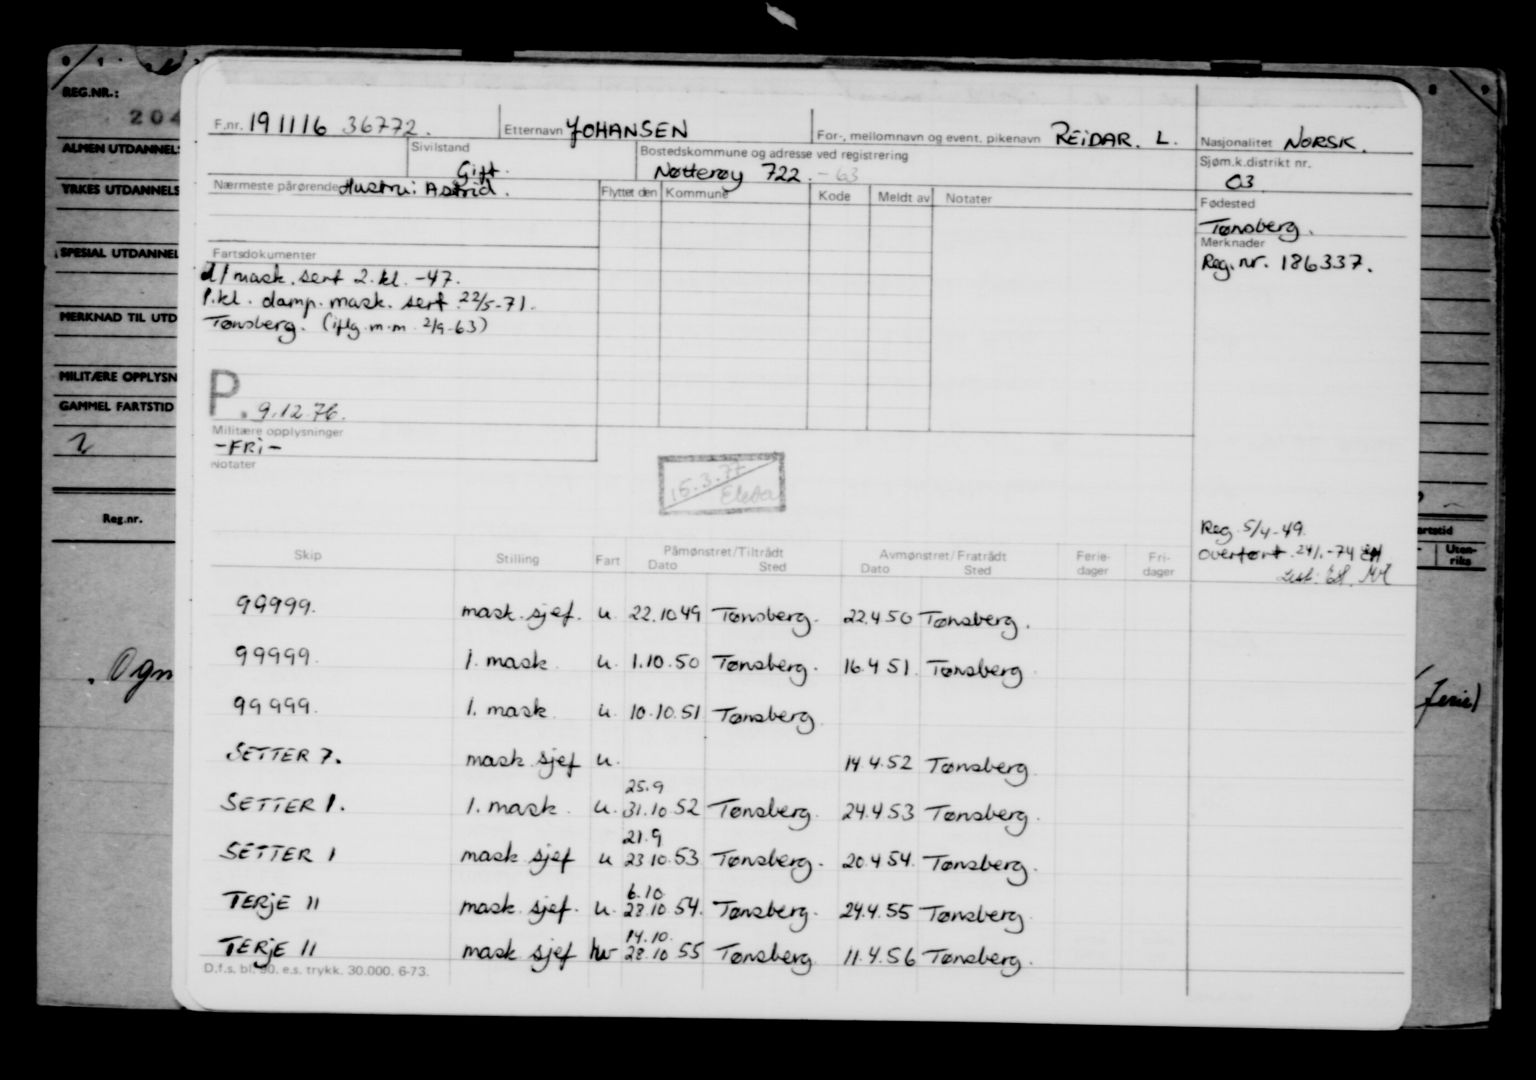 REG.NR.:
204
ALMEN UTDANNEL
YRKES UTDANNELS
SPESIAL UTDANNEL
MERKNAD TIL UTD
MILITÆRE OPPLYSN
GAMMEL FARTSTID
Reg.nr.
F.nr. 191116 36772.
Etternavn JOHANSEN
For-, mellomnavn og event. pikenavn REIDAR. L.
Nasjonalitet NORSK.
Sivilstand
Gift.
Bostedskommune og adresse ved registrering
Nøtterøy 722. -63
Sjøm.k.distrikt nr.
03
Nærmeste pårørende Hustru: Astrid.
Flyttet den Kommune Kode Meldt av Notater
Fødested
Tønsberg.
Merknader
Reg.nr. 186337.
Fartsdokumenter
d/mask.sert 2.kl. -47.
1.kl. damp.mask. sert 22/5-71.
Tønsberg. (iflg.m.m. 2/9-63)
P. 9.12.76.
Militære opplysninger
-FRI-
Notater
15.3.77
Reg. 5/4-49.
Overført. 24/1.-74
Skip Stilling Fart Påmønstret/Tiltrådt Avmønstret/Fratrådt Ferie-dager Fri-dager
Dato Sted Dato Sted
99999. mask.sjef. u. 22.10 49 Tønsberg. 22.4 50 Tønsberg.
99999. 1. mask. u. 1.10.50 Tønsberg. 16.4 51. Tønsberg.
99999. 1. mask. u. 10.10.51 Tønsberg.
SETTER 7. mask sjef u. 14.4.52 Tønsberg.
25.9
SETTER 1. 1. mask. u. 31.10 52 Tønsberg. 24.4 53 Tønsberg.
21.9
SETTER 1 mask sjef u 23 10.53 Tønsberg. 20.4 54. Tønsberg.
6.10
TERJE 11 mask.sjef. u. 28.10 54. Tønsberg. 24.4.55 Tønsberg.
14.10.
TERJE 11 mask sjef hv 28.10 55 Tønsberg. 11.4.56 Tønsberg.
D.f.s. bl. 90. e.s. trykk. 30.000. 6-73.
Uten-
riks
(ferie)